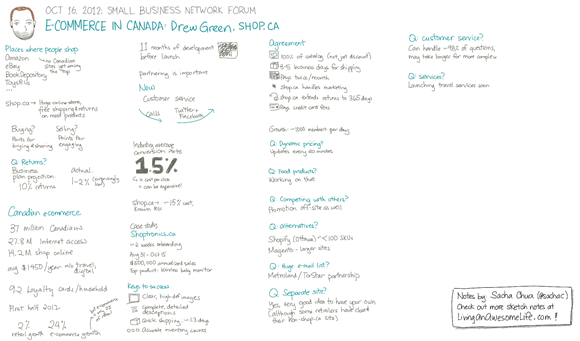 OCT 16, 2012: SMALL BUSINESS NETWORK FORUM
E-COMMERCE IN CANADA: Drew Green, SHOP.CA
Places where people shop
Amazon
eBay
Book Depository
Toys R Us
...
no Canadian
sites getting among
the top
shop.ca → Huge online store,
free shipping & returns
on most products
Buying?
Points for
buying & sharing
Selling?
Points for
engaging
Q: Returns?
Business
plan projection
10% returns
actual
1-2% (surprisingly
low)
Canadian e-commerce
37 million Canadians
27.8 M Internet access
14.2 M shop online
avg $1450/year w/o travel,
digital
9.2 Loyalty cards/household
First half 2012
2%
retail growth
24%
e-commerce growth
11 months of development
before launch
partnering is important
Now
Customer service
calls
Twitter +
Facebook
Industry average
conversion rates
1.5%
= cost per click
= can be expensive!
shop.ca → ~15% cut,
Known ROI
Case study
Shoptronics.ca
~2 weeks onboarding
Aug 31 - Oct 15
$600,000 annualized sales
Top product: wireless baby monitor
Keys to success
Clear, high-def images
Complete, detailed
descriptions
Quick shipping: ~<3 days
Accurate inventory counts
Agreement
100% of catalog (not yet discount)
3-5 business days for shipping
Pays twice/month
shop.ca handles marketing
shop.ca extends returns to 365 days
Pays credit card fees
Growth: ~1000 members per day
Q: Dynamic pricing?
Updates every 20 minutes
Q: Food products?
Working on that
Q: Competing with others?
Promotion off-site as well
Q: Alternatives?
Shopify (Ottawa) ~<100 SKUs
Magento - larger sites
Q: Huge e-mail list?
Metroland/TorStar partnership
Q: Separate site?
Yes, very good idea to have your own
(although some retailers have closed
their non-shop.ca sites)
Q: customer service?
Can handle ~98% of questions,
may take longer for more complex
Q: Services?
Launching travel services soon
Notes by Sacha Chua (@sachac)
Check out more sketch notes at
LivingAnAwesomeLife.com!